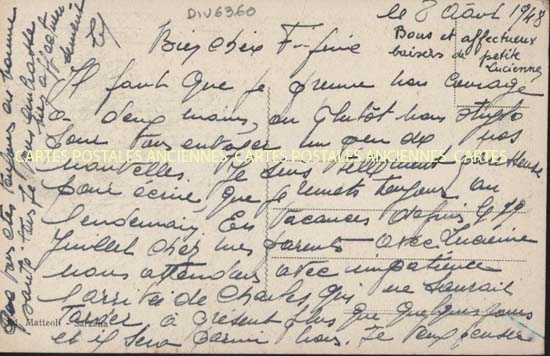 DIV6360
le 8 Août 1948
Bons et affectueux
baisers de petite
Lucienne
Bien chère Fifine
Il faut que je prenne mon courage
à deux mains, ou plutôt mon stylo
pour vous envoyer un peu de nos
nouvelles. Je suis tellement paresseuse
pour écrire, que je remets toujours au
lendemain. En vacances depuis le 19
Juillet chez mes parents avec Lucienne
nous attendons avec impatience
l'arrivée de Charles, qui ne saurait
tarder à présent plus que quelques jours
et il sera parmi nous. Je veux penser
que vous êtes toujours en bonne
santé
CARTES POSTALES ANCIENNES CARTES POSTALES ANCIENNES CARTES
Matteoli - Sarzana